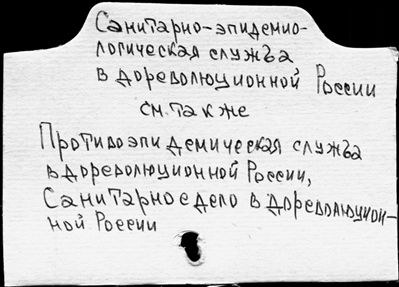 Санитарно-эпидемио-
логическая служба
в дореволюционной России
см. также
Противоэпидемическая служба
в дореволюционной России,
Санитарное дело в дореволюцион-
ной России